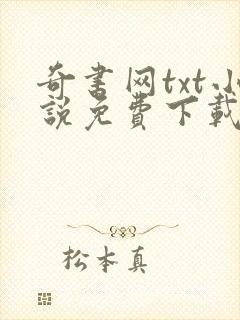 奇书网txt小
说免费下载
松本真